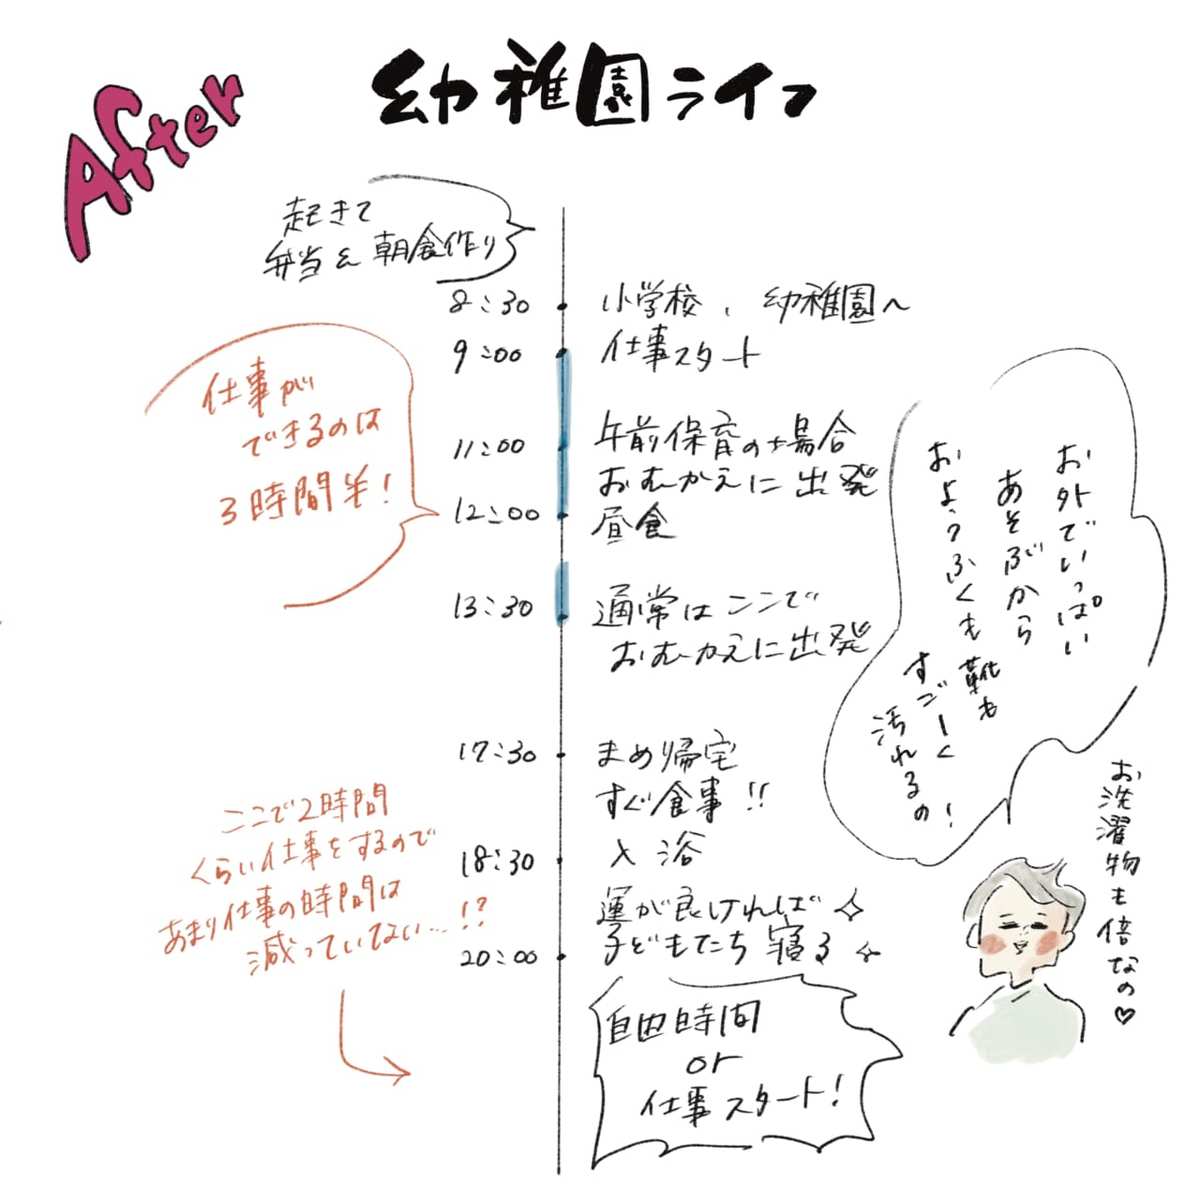 After
幼稚園ライフ
起きて
弁当&朝食作り
8:30 小学校、幼稚園へ
9:00 仕事スタート
仕事が
できるのは
3時間半!
11:00 午前保育の場合
おむかえに出発
12:00 昼食
13:30 通常はここで
おむかえに出発
お外でいっぱい
あそぶから
おようふくも靴も
すごーく
汚れるの!
お洗濯物も倍なの♡
17:30 まめ帰宅
すぐ食事!!
18:30 入浴
運が良ければ✧
20:00 子どもたち寝る✧
ここで2時間
くらい仕事をするので
あまり仕事の時間は
減っていてない…!?
自由時間
or
仕事スタート!